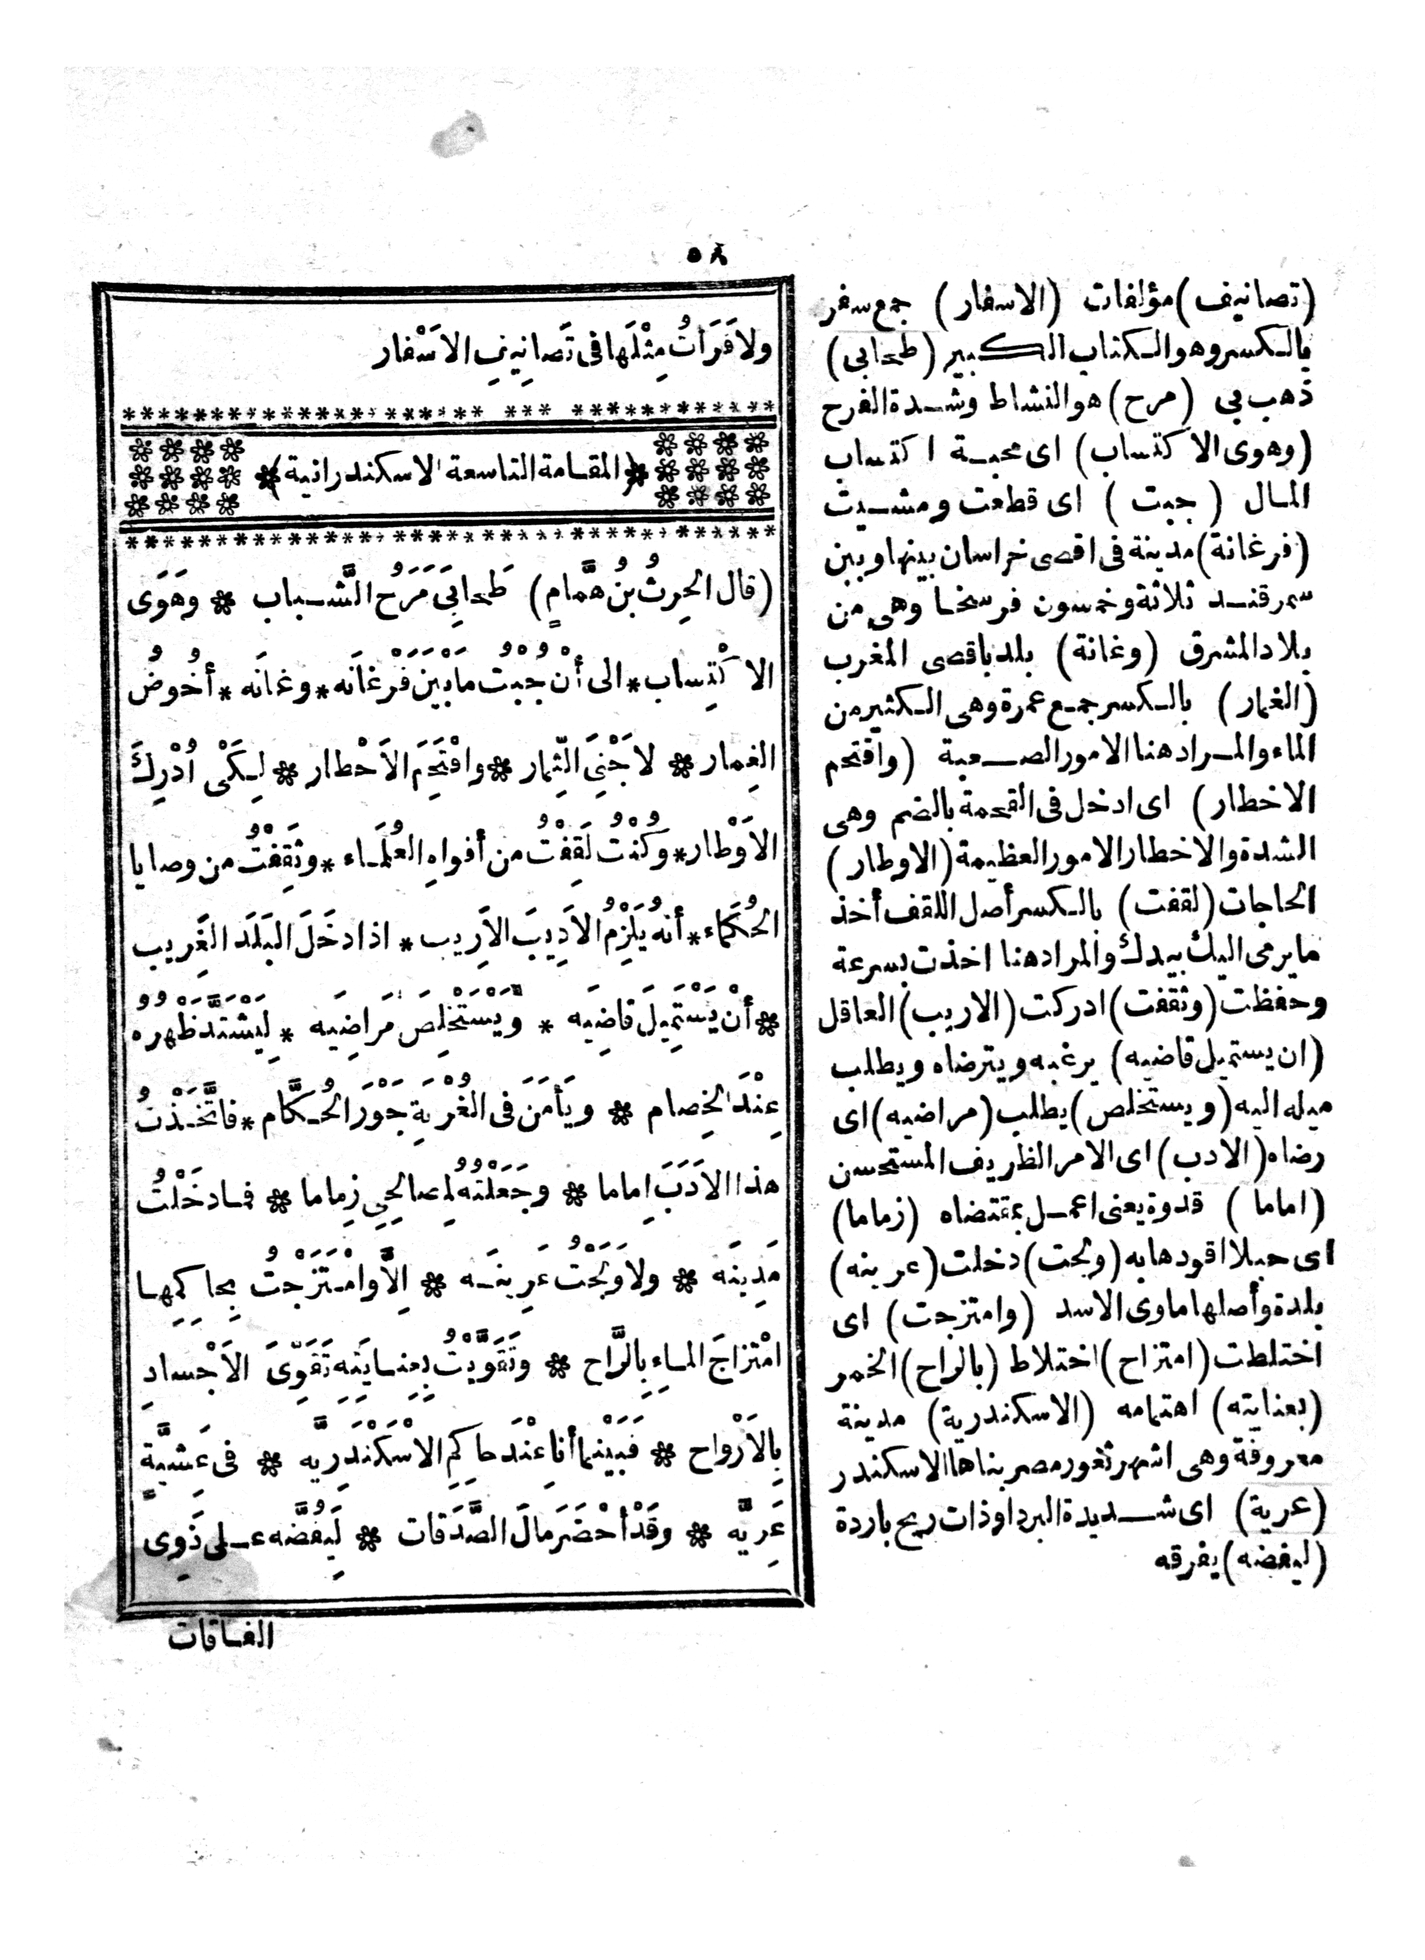 ٥٨
ولا قَرَأتُ مِثْلَها فى تَصانِيفِ الاَسْفار
﴿المقامة التاسعة الاسكندرانية﴾
(قال الحِرثُ بنُ هَمَّامٍ) طَحابِىَ مَرَحُ الشَّباب * وهَوَى
الاكْتِساب * الى أنْ جُبْتُ ما بَيْنَ فَرْغانَه * وغانَه * أخُوضُ
الغِمار * لاَجْنِىَ الثِّمار * واقْتَحِمَ الاَخْطار * لِكَىْ اُدْرِكَ
الاَوْطار * وكُنْتُ لَقِفْتُ من أفواهِ العُلَماء * وثَقِفْتُ من وصايا
الحُكَماء * أنهُ يَلْزِمُ الاَدِيبَ الاَرِيب * اذا دخَلَ البَلَدَ الغَرِيب
* أنْ يَسْتَمِيلَ قاضِيَه * ويَسْتَخْلِصَ مَراضِيَه * لِيَشْتَدَّ ظَهْرُهُ
عِنْدَ الخِصام * ويَأمَنَ فى الغُرْبَةِ جَوْرَ الحُكَّام * فاتَّخَذْتُ
هذا الاَدَبَ اِماما * وجَعَلْتُهُ لِمصالِحِى زِماما * فما دخَلْتُ
مَدِينَه * ولا وَلَجْتُ عَرِينَه * اِلَّا وامْتَزَجْتُ بِحاكِمِها
امْتزاجَ الماءِ بِالرَّاح * وتَقَوَّيْتُ بِعِنايَتِهِ تَقَوِّىَ الاَجْسادِ
بِالاَرْواح * فَبَيْنما أنا عِنْدَ حاكِمِ الاسْكَنْدَرِيَّه * فى عَشِيَّةٍ
عَرِيَّه * وقَدْ أحْضَرَ مالَ الصَّدَقات * لِيَفُضَّه على ذَوِى
الفاقات
(تصانيف) مؤلفات (الاسفار) جمع سفر
بالكسر وهو الكتاب الكبير (طحابى)
ذهب بى (مرح) هو النشاط وشدة الفرح
(وهوى الاكتساب) اى محبة اكتساب
المال (جبت) اى قطعت ومشيت
(فرغانة) مدينة فى اقصى خراسان بينها وبين
سمرقند ثلاثة وخمسون فرسخا وهى من
بلاد المشرق (وغانة) بلد باقصى المغرب
(الغمار) بالكسر جمع غمرة وهى الكثير من
الماء والمراد هنا الامور الصعبة (واقتحم
الاخطار) اى ادخل فى القحمة بالضم وهى
الشدة والاخطار الامور العظيمة (الاوطار)
الحاجات (لقفت) بالكسر أصل اللقف أخذ
ما يرمى اليك بيدك والمراد هنا اخذت بسرعة
وحفظت (وثقفت) ادركت (الاريب) العاقل
(ان يستميل قاضيه) يرغبه ويترضاه ويطلب
ميله اليه (ويستخلص) يطلب (مراضيه) اى
رضاه (الادب) اى الامر الظريف المستحسن
(اماما) قدوة يعنى اعمل بمقتضاه (زماما)
اى حبلا اقودها به (ولجت) دخلت (عرينه)
بلدة وأصلها ماوى الاسد (وامتزجت) اى
اختلطت (امتزاح) اختلاط (بالراح) الخمر
(بعنايته) اهتمامه (الاسكندرية) مدينة
معروفة وهى اشهر ثغور مصر بناها الاسكندر
(عرية) اى شديدة البرد او ذات ريح باردة
(ليفضه) يفرقه